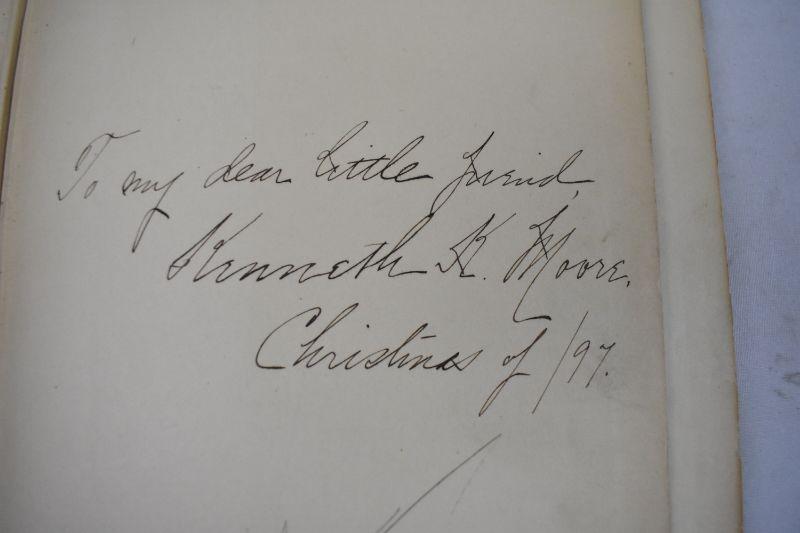 To my dear little friend,
Kenneth K. Moore.
Christmas of /97.